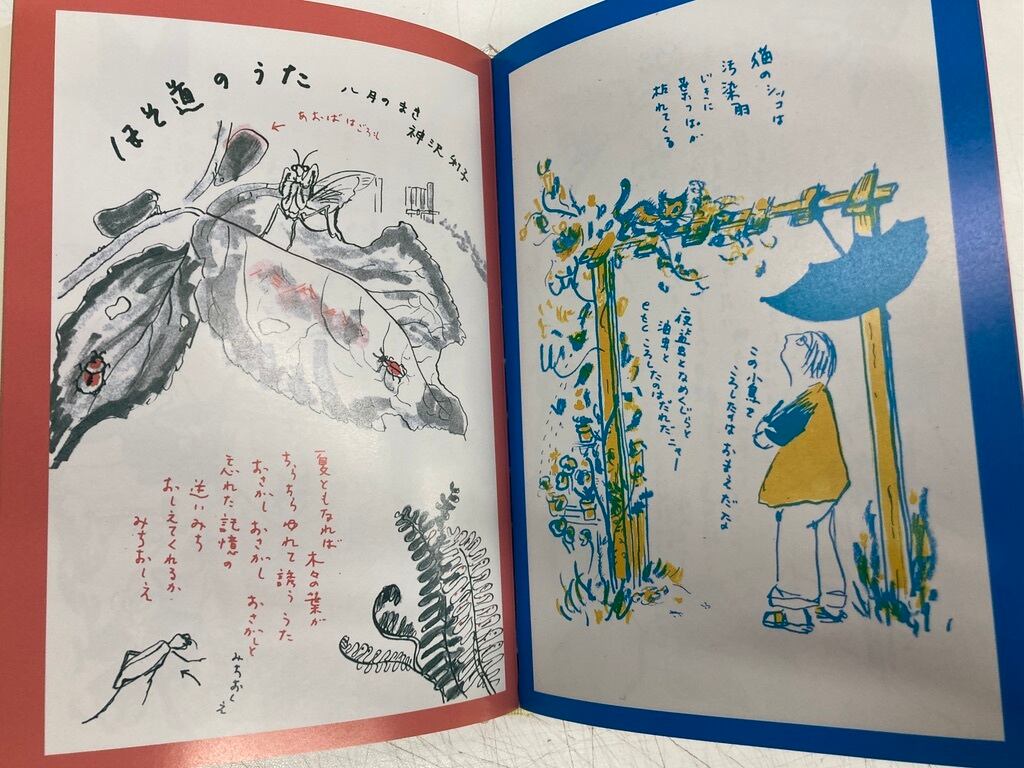 ほそ道のうた
八月のまき
神沢利子
あおばはごろも
夏ともなれば 木々の葉が
ちらちらゆれて 誘ううた
おさがし おさがし おさがしと
忘れた記憶の
迷いみち
おしえてくれるか
みちおしえ
みちおしえ
猫のシッコは
汚染雨
じきに
葉っぱが
枯れてくる
夜盗虫となめくじらと
油虫と ニャー
ともくころしたのはだれだ
この小鳥を
ころしたのは おまえだな